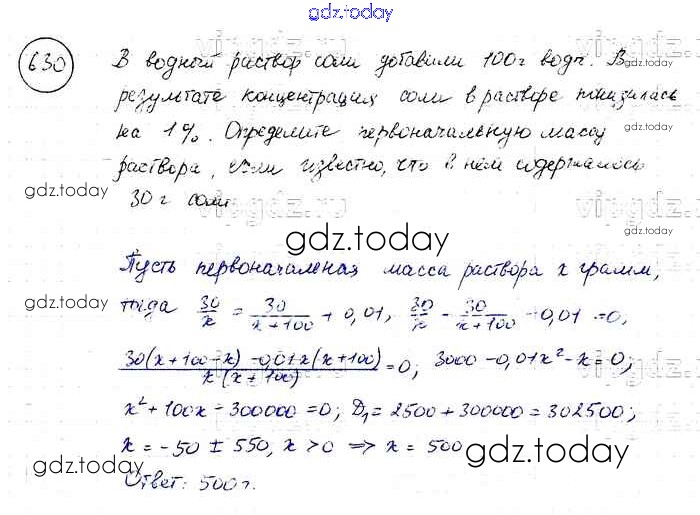 gdz.today
630
В водный раствор соли добавили 100г воды. В
результате концентрация соли в растворе понизилась
на 1%. Определите первоначальную массу
раствора, если известно, что в нём содержалось
30 г соли.
gdz.today
Пусть первоначальная масса раствора x грамм,
тогда 30/x = 30/(x+100) + 0,01, 30/x - 30/(x+100) - 0,01 = 0,
(30(x+100-x) - 0,01x(x+100))/(x(x+100)) = 0; 3000 - 0,01x² - x = 0;
x² + 100x - 300000 = 0; D₁ = 2500 + 300000 = 302500;
x = -50 ± 550, x > 0 ⇒ x = 500
Ответ: 500г.
gdz.today
gdz.today
gdz.today
gdz.today
gdz.today
gdz.today
gdz.today